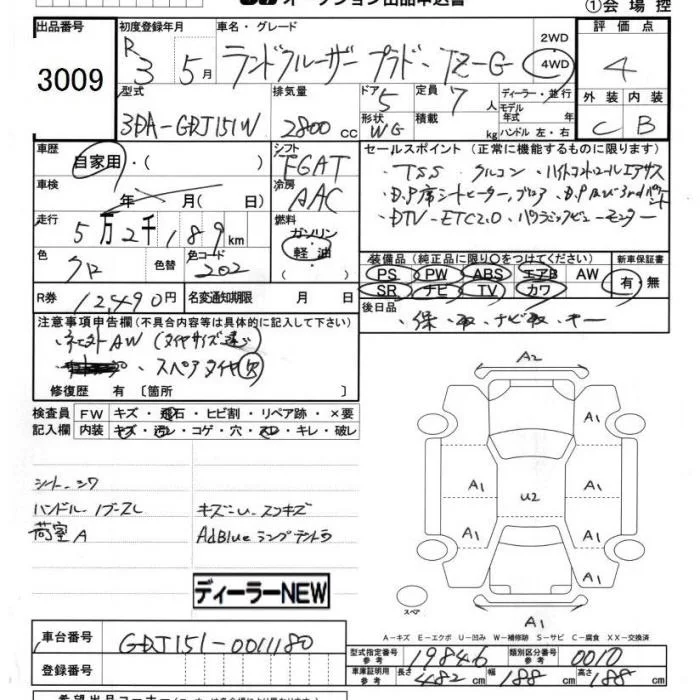 オークション出品申込書 ①会場控
出品番号 初度登録年月 車名・グレード 評価点
3009 R3 5月 ランドクルーザー プラド TZ-G 2WD 4WD 4
型式 排気量 ドア 定員 ディーラー・並行 外装 内装
3DA-GDJ151W 2800cc 5 7人 モデル年式 年式 C B
形状 WG 積載 kg ハンドル 左・右
車歴 シフト セールスポイント(正常に機能するものに限ります)
自家用・( ) FGAT ・TSS ・クルコン ・ハイトコントロールエアサス
車検 冷房 ・D.P席シートヒーター,ブロア
年 月(日) AAC ・DTV ・ETC2.0 ・パノラミックビューモニター
走行 燃料
5万2千189km ガソリン
軽油
色 色替 色コード 装備品(純正品に限り○をつけてください) 新車保証書
クロ 202 ( ) PS PW ABS エアB AW 有・無
SR ナビ TV カワ
R券 12,490円 名変通知期限 月 日 後日品
・保・取・ナビ取・キー
注意事項申告欄(不具合内容等は具体的に記入して下さい)
AW(タイヤサイズ違い)
・スペアタイヤ欠
修復歴 有〔箇所 〕
検査員 FW キズ・飛石・ヒビ割・リペア跡・×要
記入欄 内装 キズ・汚レ・コゲ・穴・スレ・キレ・破レ
A2
A1
A1 A1
U2
A1 A1
A1
スペア
A1
シート シワ
ハンドル
荷室A
キズ・U、スコキズ
AdBlueランプテントウ
ディーラーNEW
A-キズ E-エクボ U-凹み W-補修跡 S-サビ C-腐食 XX-交換済
車台番号 GDJ151-0011180 型式指定番号 参考 19846 類別区分番号 参考 0010
登録番号 車庫証明用 参考 長さ 482cm 幅 188cm 高さ 188cm
希望出品コーナー